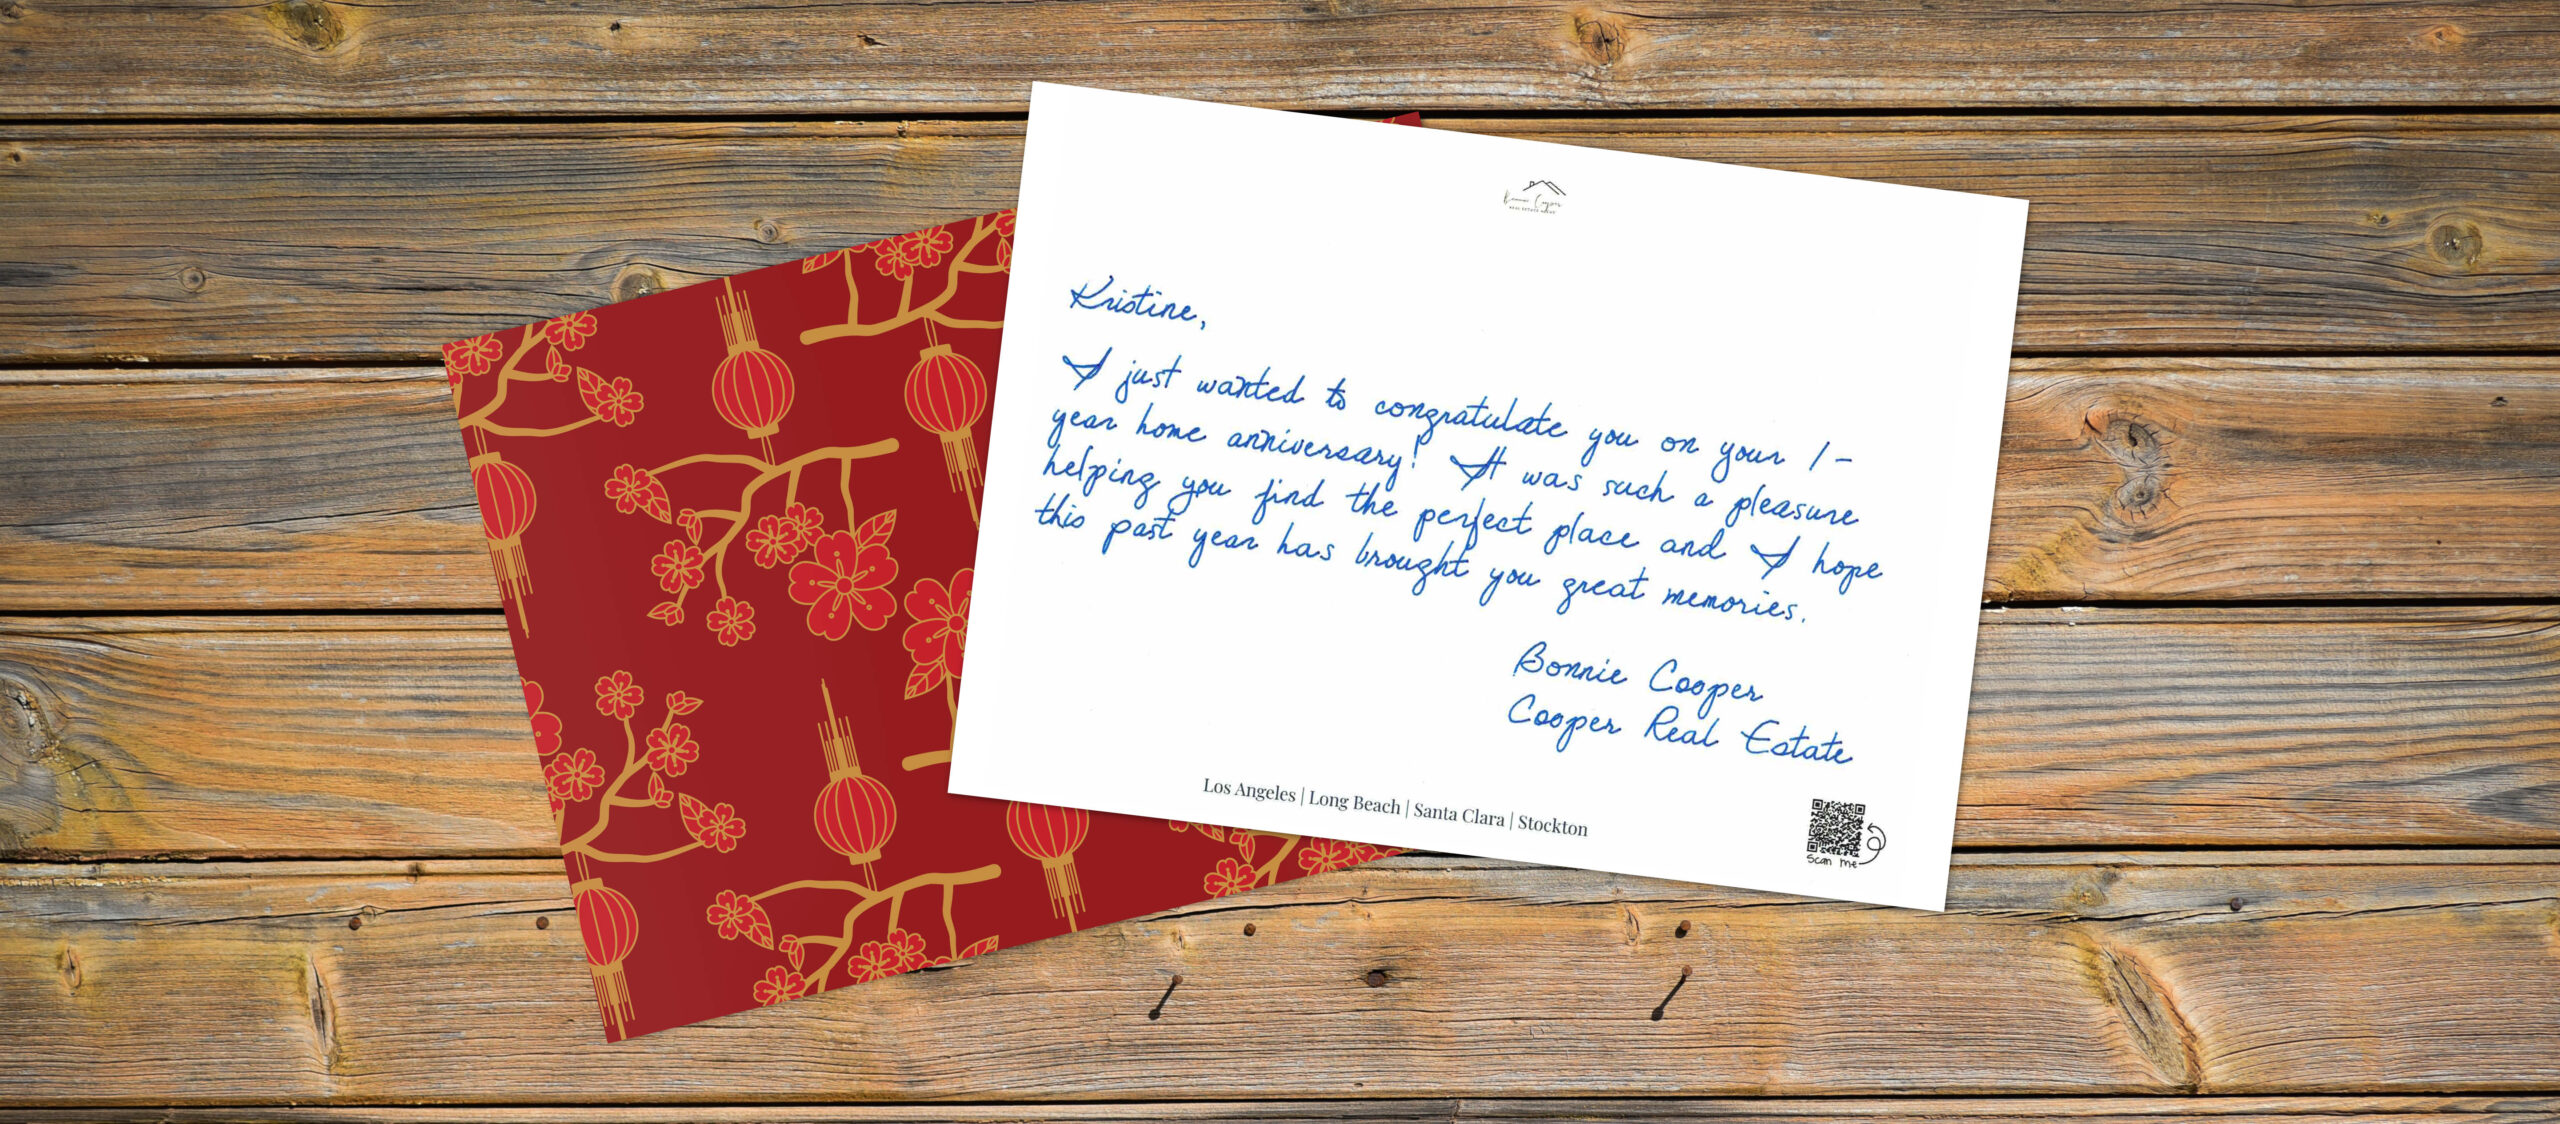 Bonnie Cooper
REAL ESTATE AGENT
Kristine,
I just wanted to congratulate you on your 1-
year home anniversary! It was such a pleasure
helping you find the perfect place and I hope
this past year has brought you great memories.
Bonnie Cooper
Cooper Real Estate
Los Angeles | Long Beach | Santa Clara | Stockton
Scan me